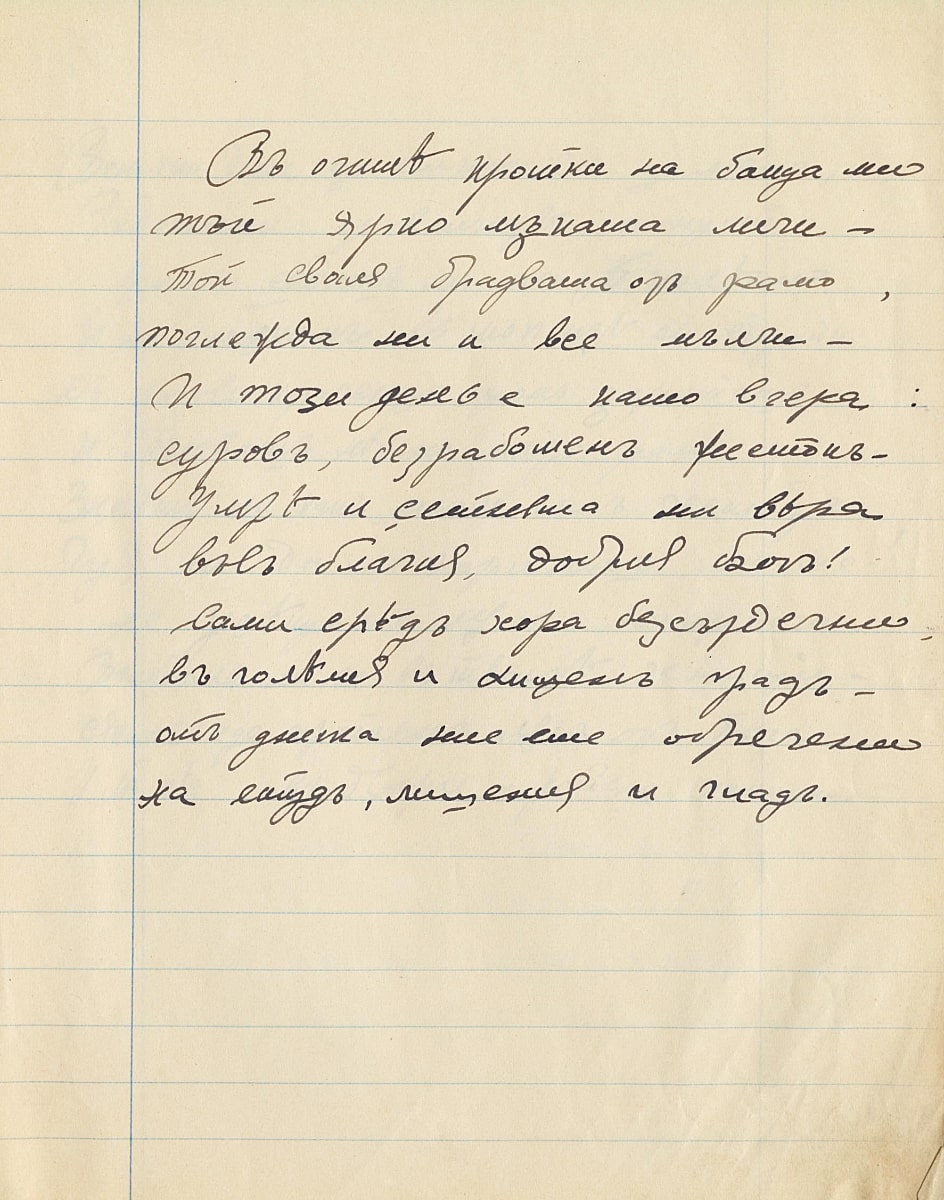 Въ очитѣ кротки на баща ми
тъй ярко мъката личи –
Той сваля брадвата отъ рамо,
поглежда ни и все мълчи –
И този день е като вчера:
суровъ, безработенъ жестокъ –
Умрѣ и сетнята ни вѣра
във благия, добрия богъ!
Сами срѣдъ хора безсърдечни,
въ голѣмия и хищенъ градъ –
отъ днеска ние сме обречени
на студъ, лишения и гладъ.